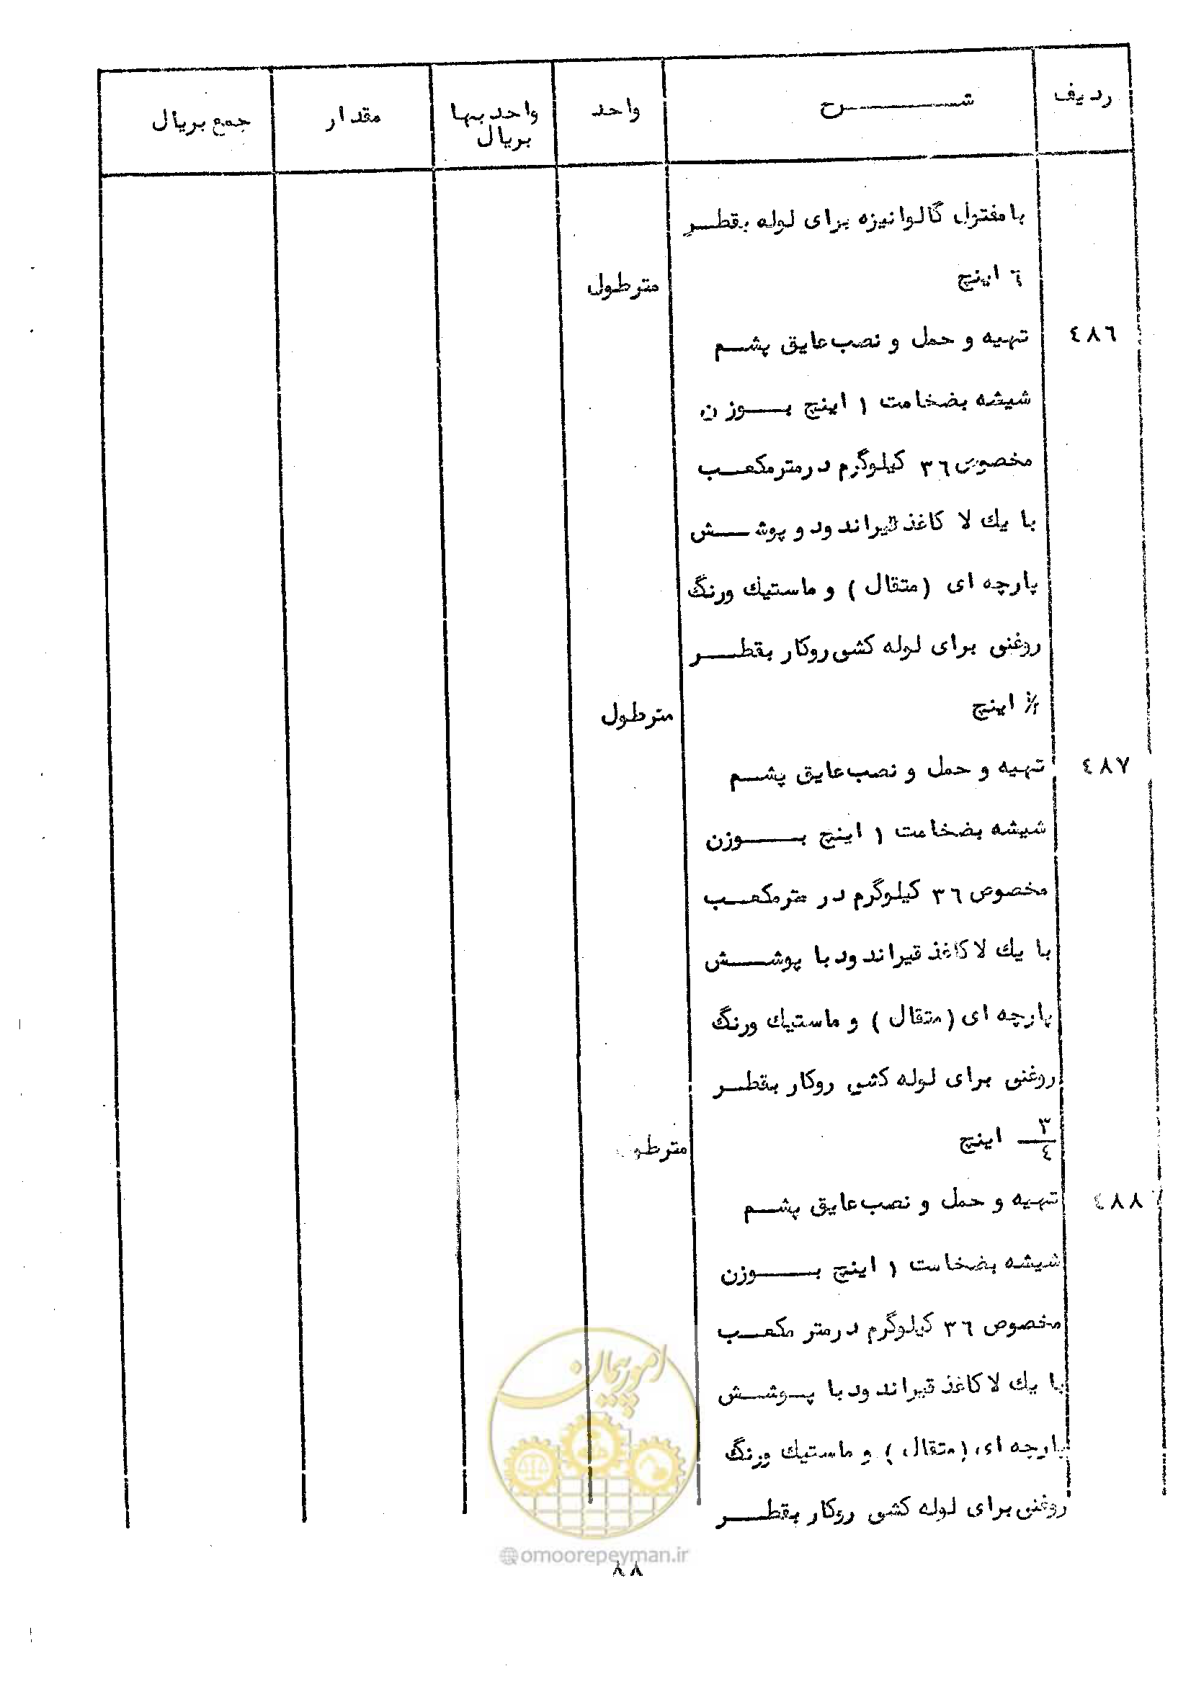 ردیف شرح واحد واحد بها بریال مقدار جمع بریال
با مفتول گالوانیزه برای لوله بقطر
٦ اینچ مترطول
٤٨٦ تهیه و حمل و نصب عایق پشم
شیشه بضخامت ١ اینچ بوزن
مخصوص ٣٦ کیلوگرم درمترمکعب
با یك لا کاغذ قیراندود و پوشش
پارچه ای (متقال) و ماستیك ورنگ
روغنی برای لوله کشی روکار بقطر
اینچ مترطول
٤٨٧ تهیه و حمل و نصب عایق پشم
شیشه بضخامت ١ اینچ بوزن
مخصوص ٣٦ کیلوگرم در مترمکعب
با یك لا کاغذ قیراندود با پوشش
پارچه ای (متقال) و ماستیك ورنگ
روغنی برای لوله کشی روکار بقطر
٣/٤ اینچ مترطو
٤٨٨ تهیه و حمل و نصب عایق پشم
شیشه بضخامت ١ اینچ بوزن
مخصوص ٣٦ کیلوگرم درمتر مکعب
با یك لا کاغذ قیراندود با پوشش
پارچه ای (متقال) و ماستیك ورنگ
روغنی برای لوله کشی روکار بقطر
امور پیمان
@omoorepeyman.ir
٨٨